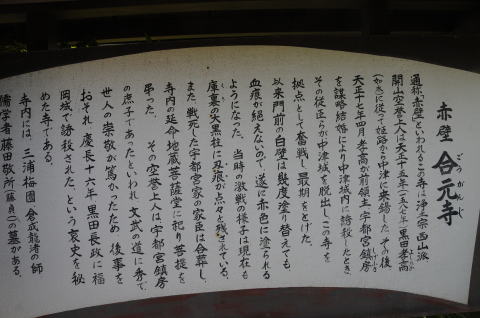 赤壁 合元寺
ごうがんじ
通称、赤壁といわれるこの寺は、浄土宗西山派
開山空誉上人は天正十五年(一五八七)黒田孝高
よしたか
(如水)に従って姫路から中津に来錫した。その後
天正十七年四月孝高が前領主宇都宮鎮房
しげふさ
を謀略結婚により中津城内に誘殺したとき、
その従臣らが中津城を脱出し、この寺を
拠点として奮戦し、最期をとげた。
以来門前の白壁は幾度塗り替えても
血痕が絶えないので、遂に赤色に塗られる
ようになった。当時の激戦の様子は現在も
庫裏の大黒柱に刃痕が点々と残されている。
また、戦死した宇都宮家の家臣は合葬し、
寺内の延命地蔵菩薩堂に祀り菩提を
弔った。 その空誉上人は、宇都宮鎮房
の庶子であったといわれ、文武の道に秀で、
世人の崇敬が篤かったため、後事を
おそれ、慶長十六年、黒田長政に福
岡城で誘殺された、という哀史を秘
めた寺である。
寺内には、三浦梅園、倉成龍渚の師
儒学者藤田敬所(藤貞一)の墓がある。